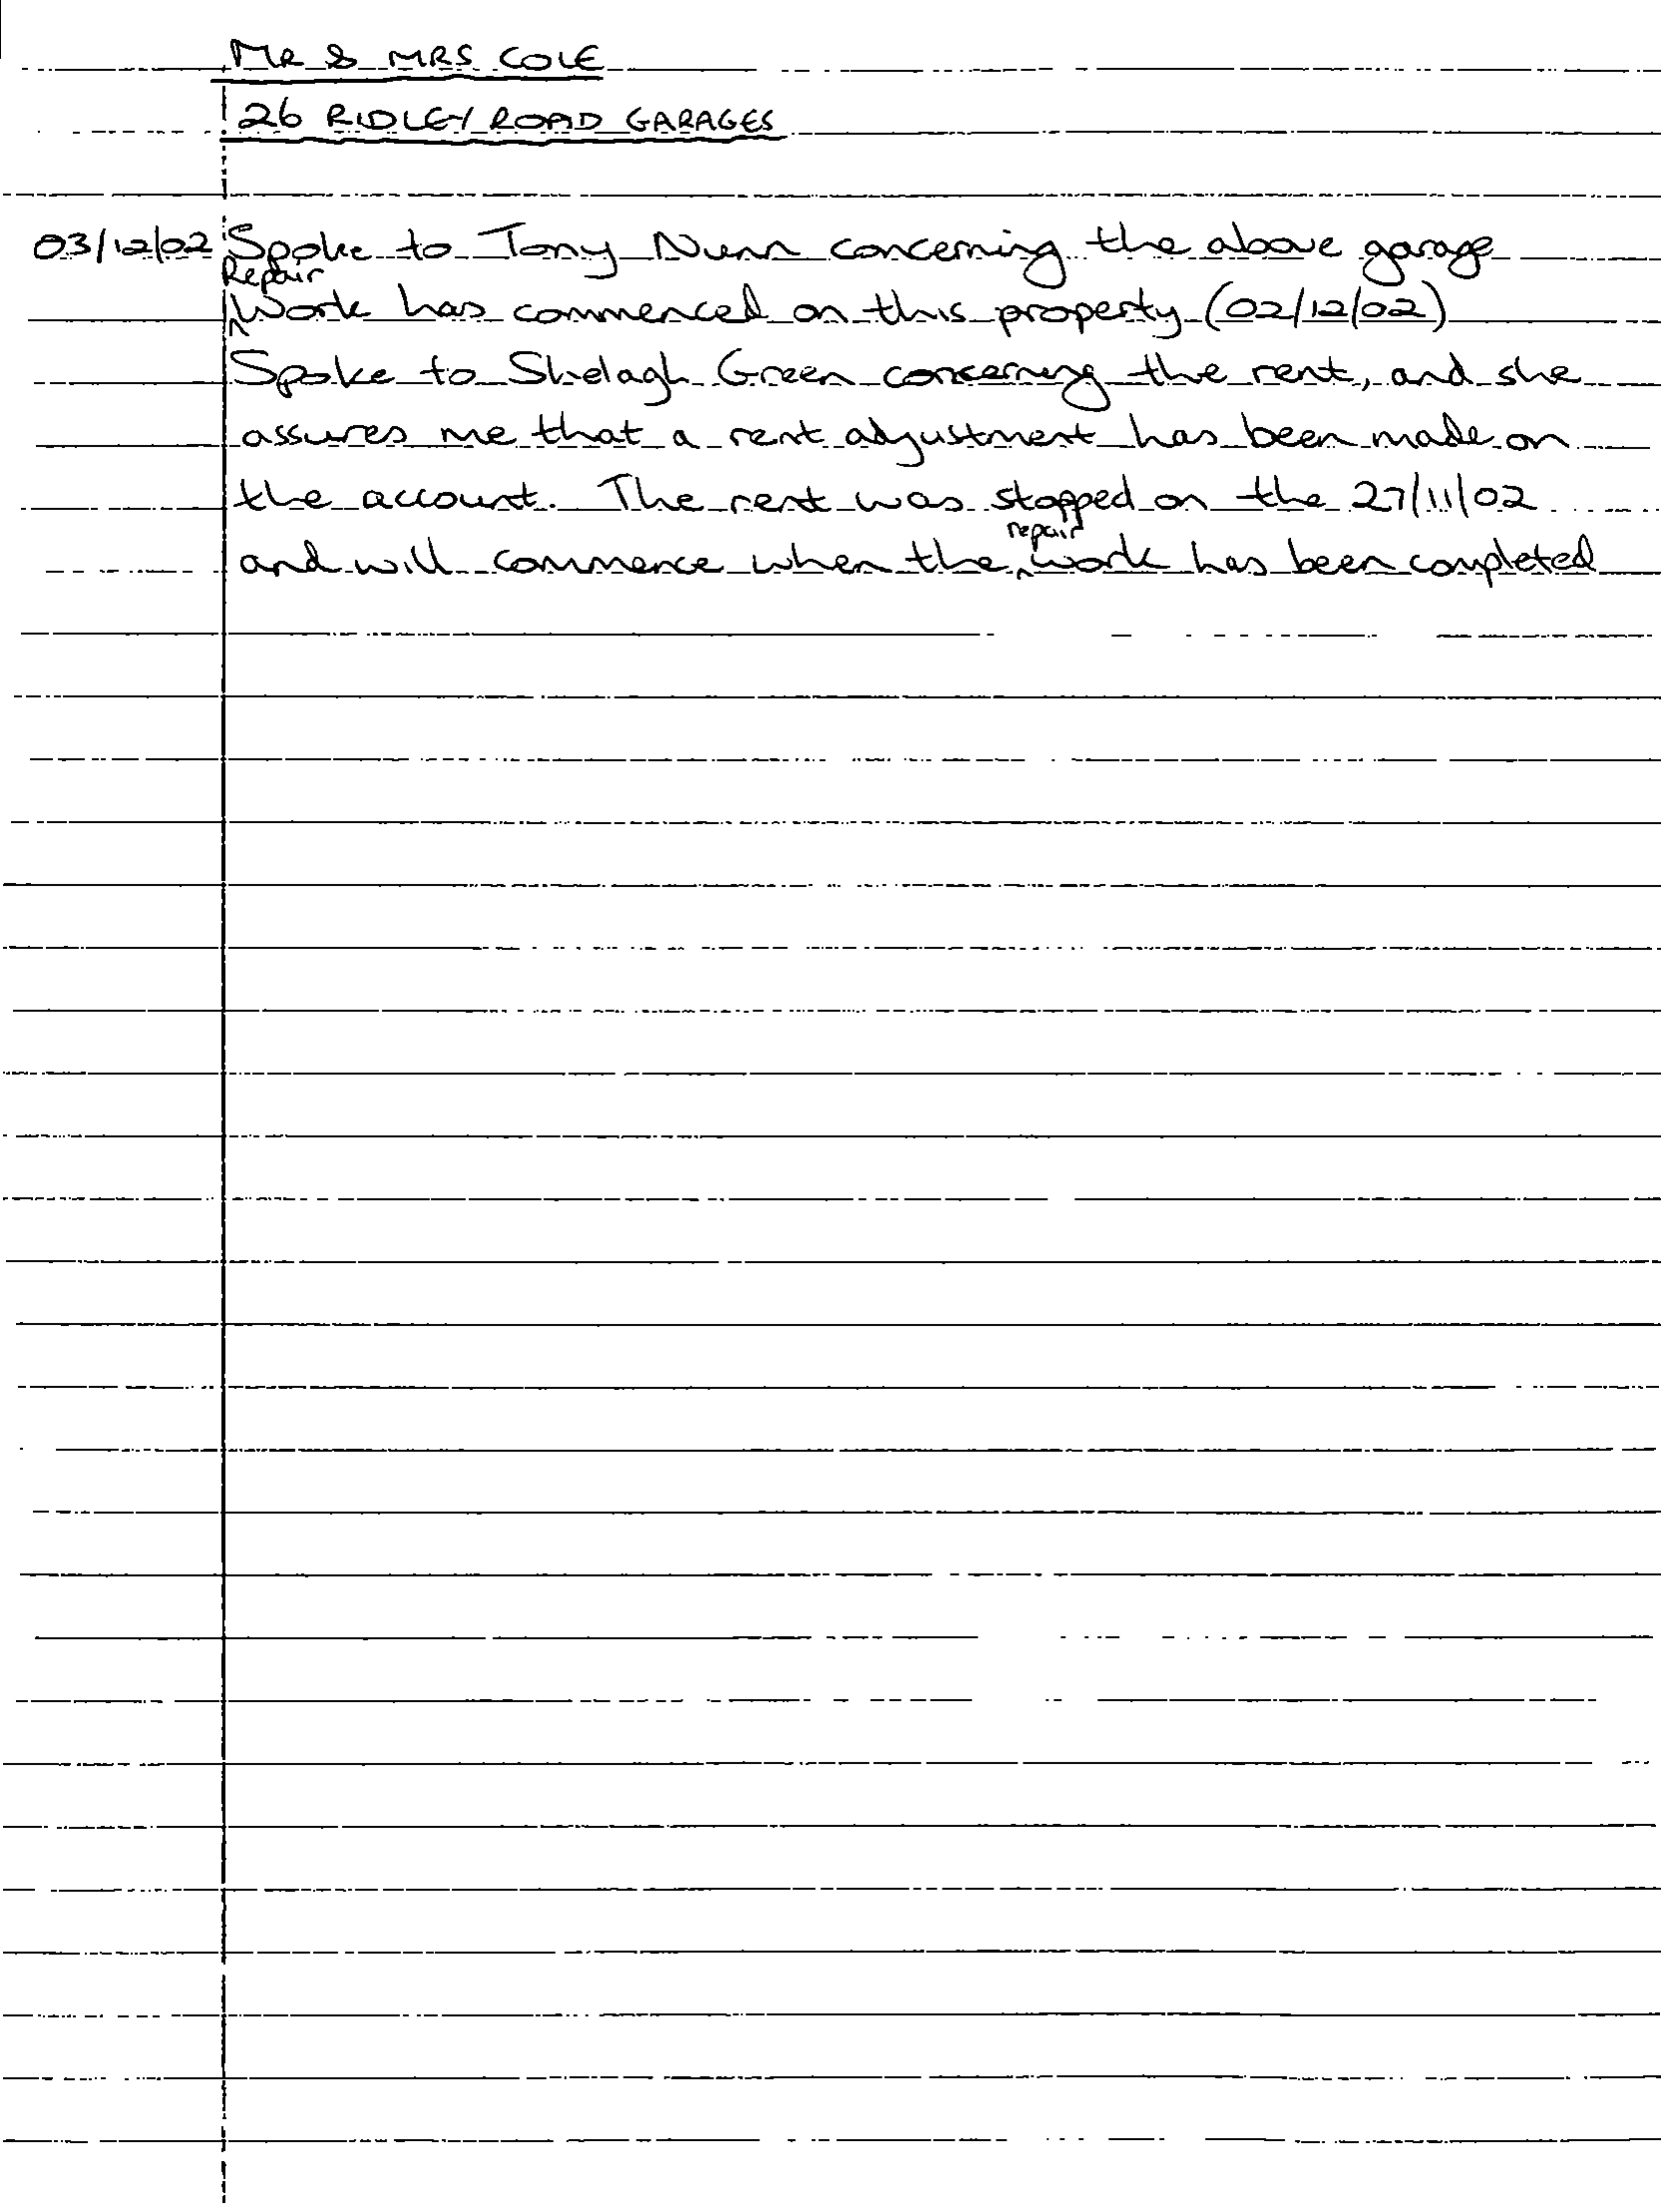 MR & MRS COLE
26 RIDLEY ROAD GARAGES
03/12/02 Spoke to Tony Nunn concerning the above garage
Repair
Work has commenced on this property (02/12/02)
Spoke to Shelagh Green concerning the rent, and she
assures me that a rent adjustment has been made on
the account. The rent was stopped on the 27/11/02
repair
and will commence when the work has been completed